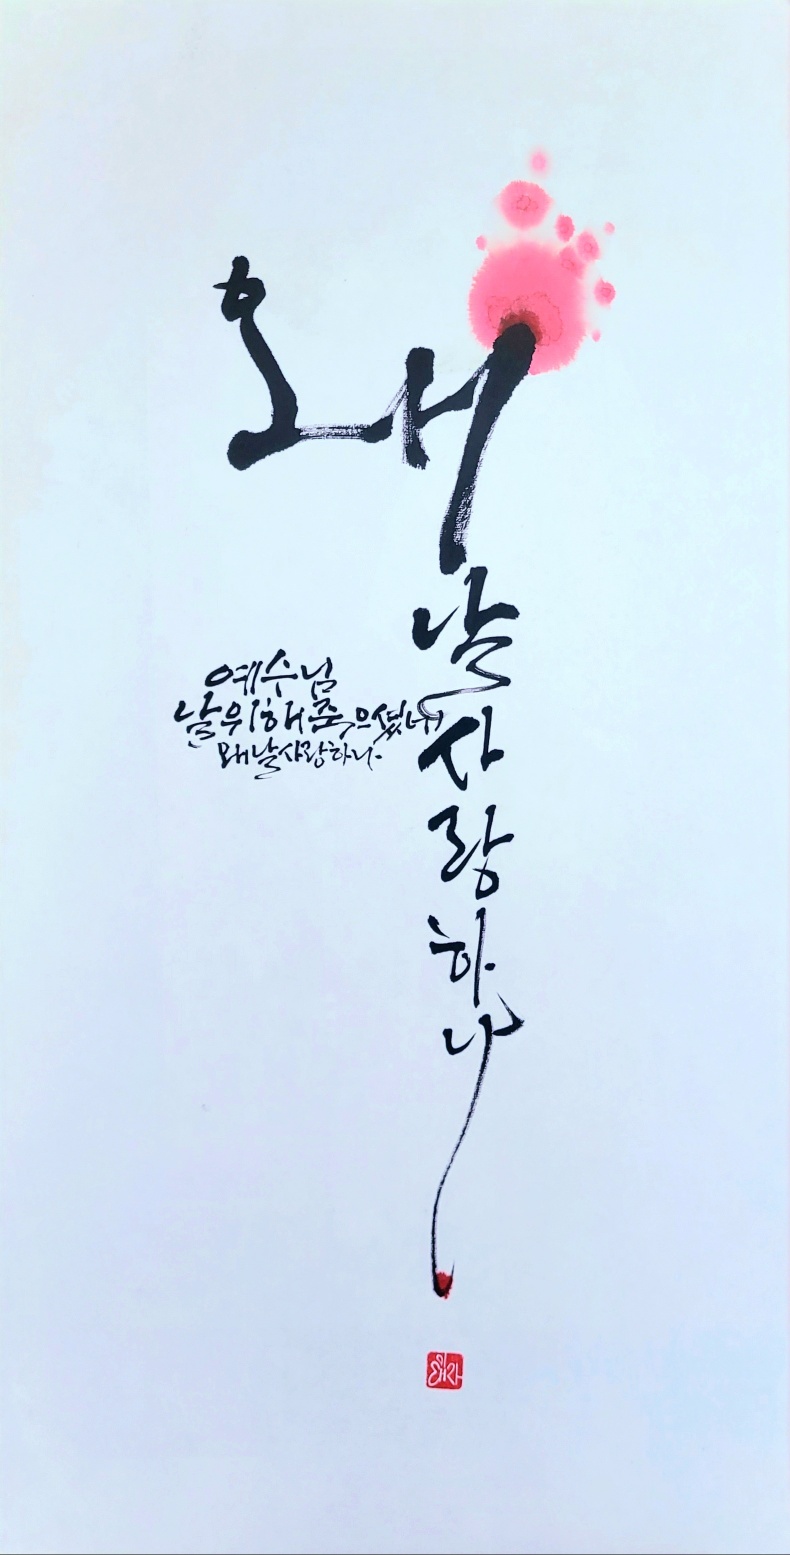 왜
날
사
랑
하
나
예수님
날 위해 죽으셨네
왜 날 사랑하나